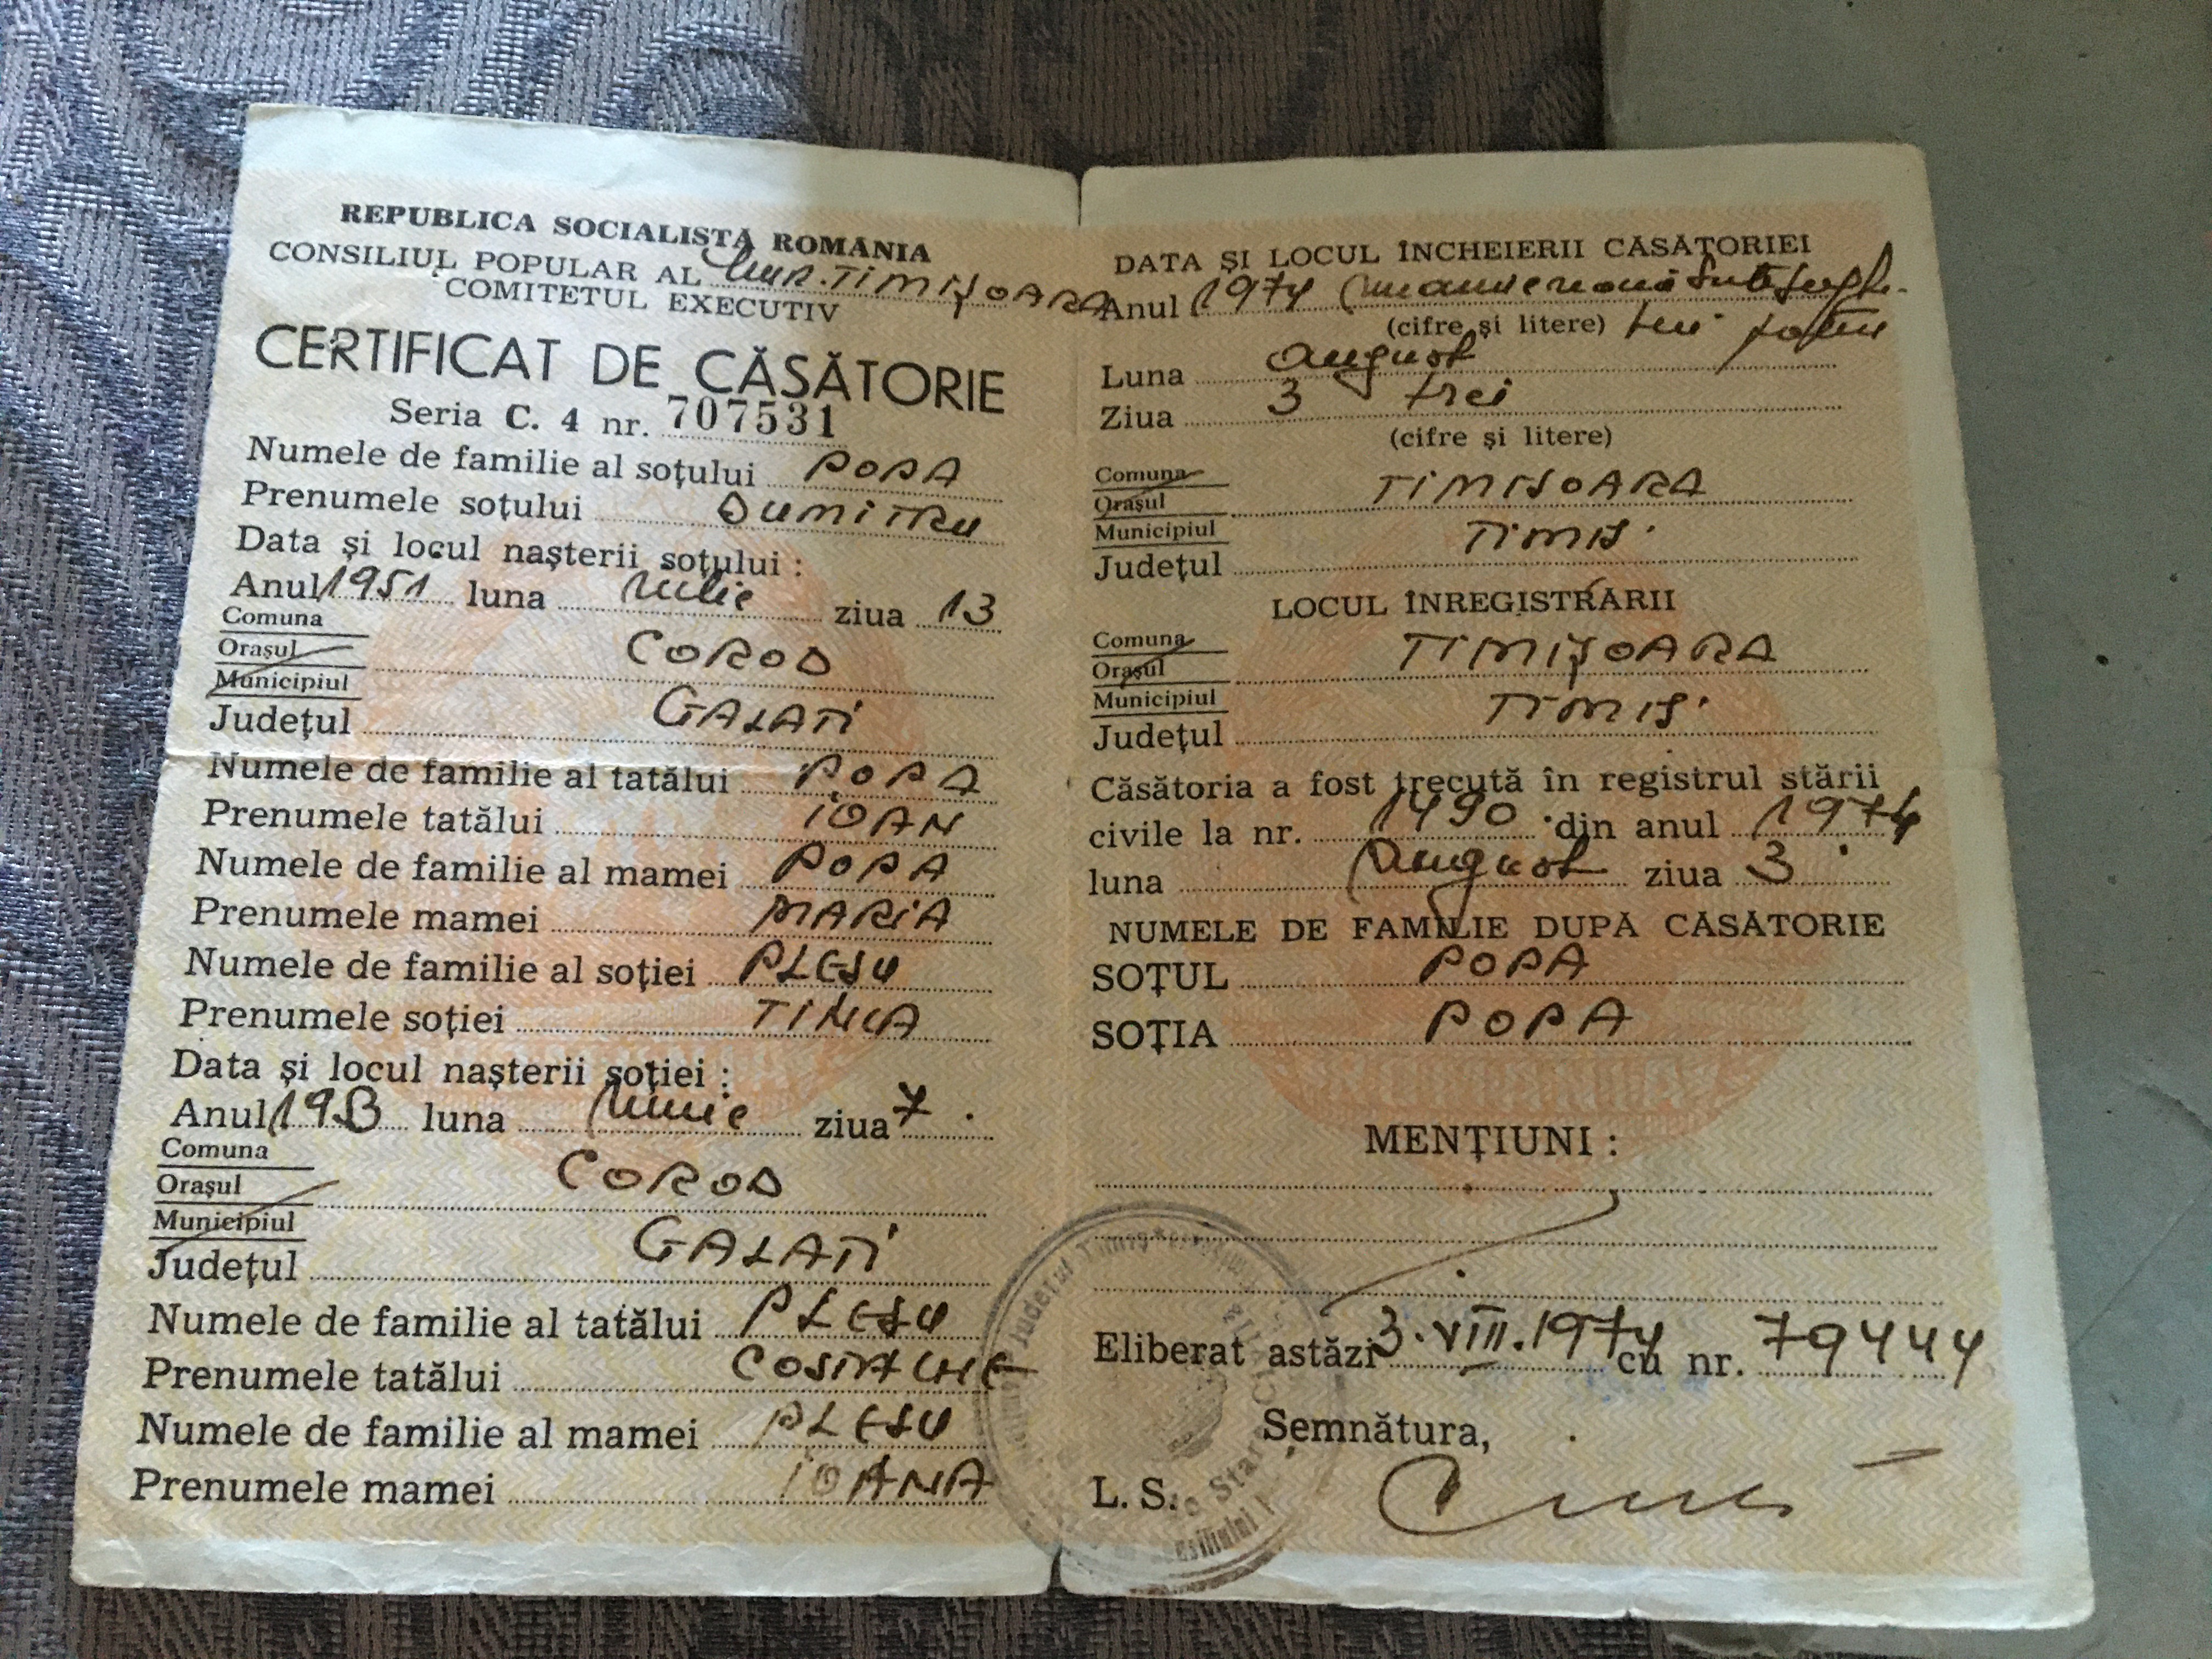 REPUBLICA SOCIALISTĂ ROMÂNIA
CONSILIUL POPULAR AL Mun. TIMIȘOARA
COMITETUL EXECUTIV
CERTIFICAT DE CĂSĂTORIE
Seria C. 4 nr. 707531
Numele de familie al soțului POPA
Prenumele soțului DUMITRU
Data și locul nașterii soțului :
Anul 1951 luna Iulie ziua 13
Comuna
Orașul COROD
Municipiul
Județul GALATI
Numele de familie al tatălui POPA
Prenumele tatălui IOAN
Numele de familie al mamei POPA
Prenumele mamei MARIA
Numele de familie al soției PLESU
Prenumele soției TINCA
Data și locul nașterii soției :
Anul 1953 luna Iunie ziua 7
Comuna
Orașul COROD
Municipiul
Județul GALATI
Numele de familie al tatălui PLESU
Prenumele tatălui COSTACHE
Numele de familie al mamei PLESU
Prenumele mamei IOANA
DATA ȘI LOCUL ÎNCHEIERII CĂSĂTORIEI
Anul 1974 unamienouăsuteșapte-
(cifre și litere) zeci patru
Luna august
Ziua 3 trei
(cifre și litere)
Comuna
Orașul TIMISOARA
Municipiul
Județul TIMIS
LOCUL ÎNREGISTRĂRII
Comuna
Orașul TIMIȘOARA
Municipiul
Județul TIMIS
Căsătoria a fost trecută în registrul stării
civile la nr. 1490 din anul 1974
luna august ziua 3
NUMELE DE FAMILIE DUPĂ CĂSĂTORIE
SOȚUL POPA
SOȚIA POPA
MENȚIUNI :
Eliberat astăzi 3.VIII.1974 cu nr. 79444
Semnătura,
L. S.
Județul Timiș